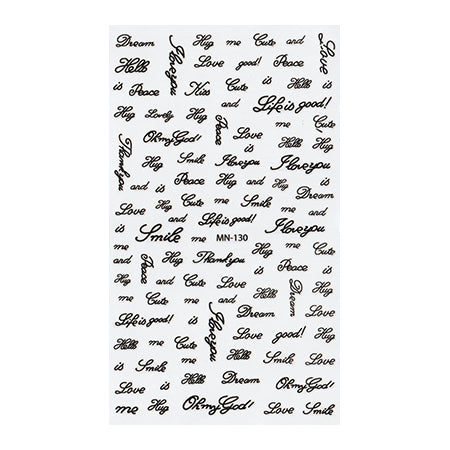 Dream Hug me Cute and Love
Hello I love you Love good! Peace
is Peace Kiss Cute is and is
Hug Lovely Hug and Life is good!
Thank you Oh my God! Peace Love Cute
is Hug Smile I love you Hug I love you
and is Peace Hug and Hug is
Love Hug me Cute Hug Cute
me and Life is good! and I love you
Smile me MN-130 is me
me Hug Thank you Hug Peace is
Peace and Cute and Love and
me Cute me Hello Dream me
Life is good! is I love you Dream Love
and Love good! Hug
Hello me Cute Hello Smile Love
is Smile is Love me Smile
Love is Hello Dream Hello Cute
me Hug Oh my God! Love Smile